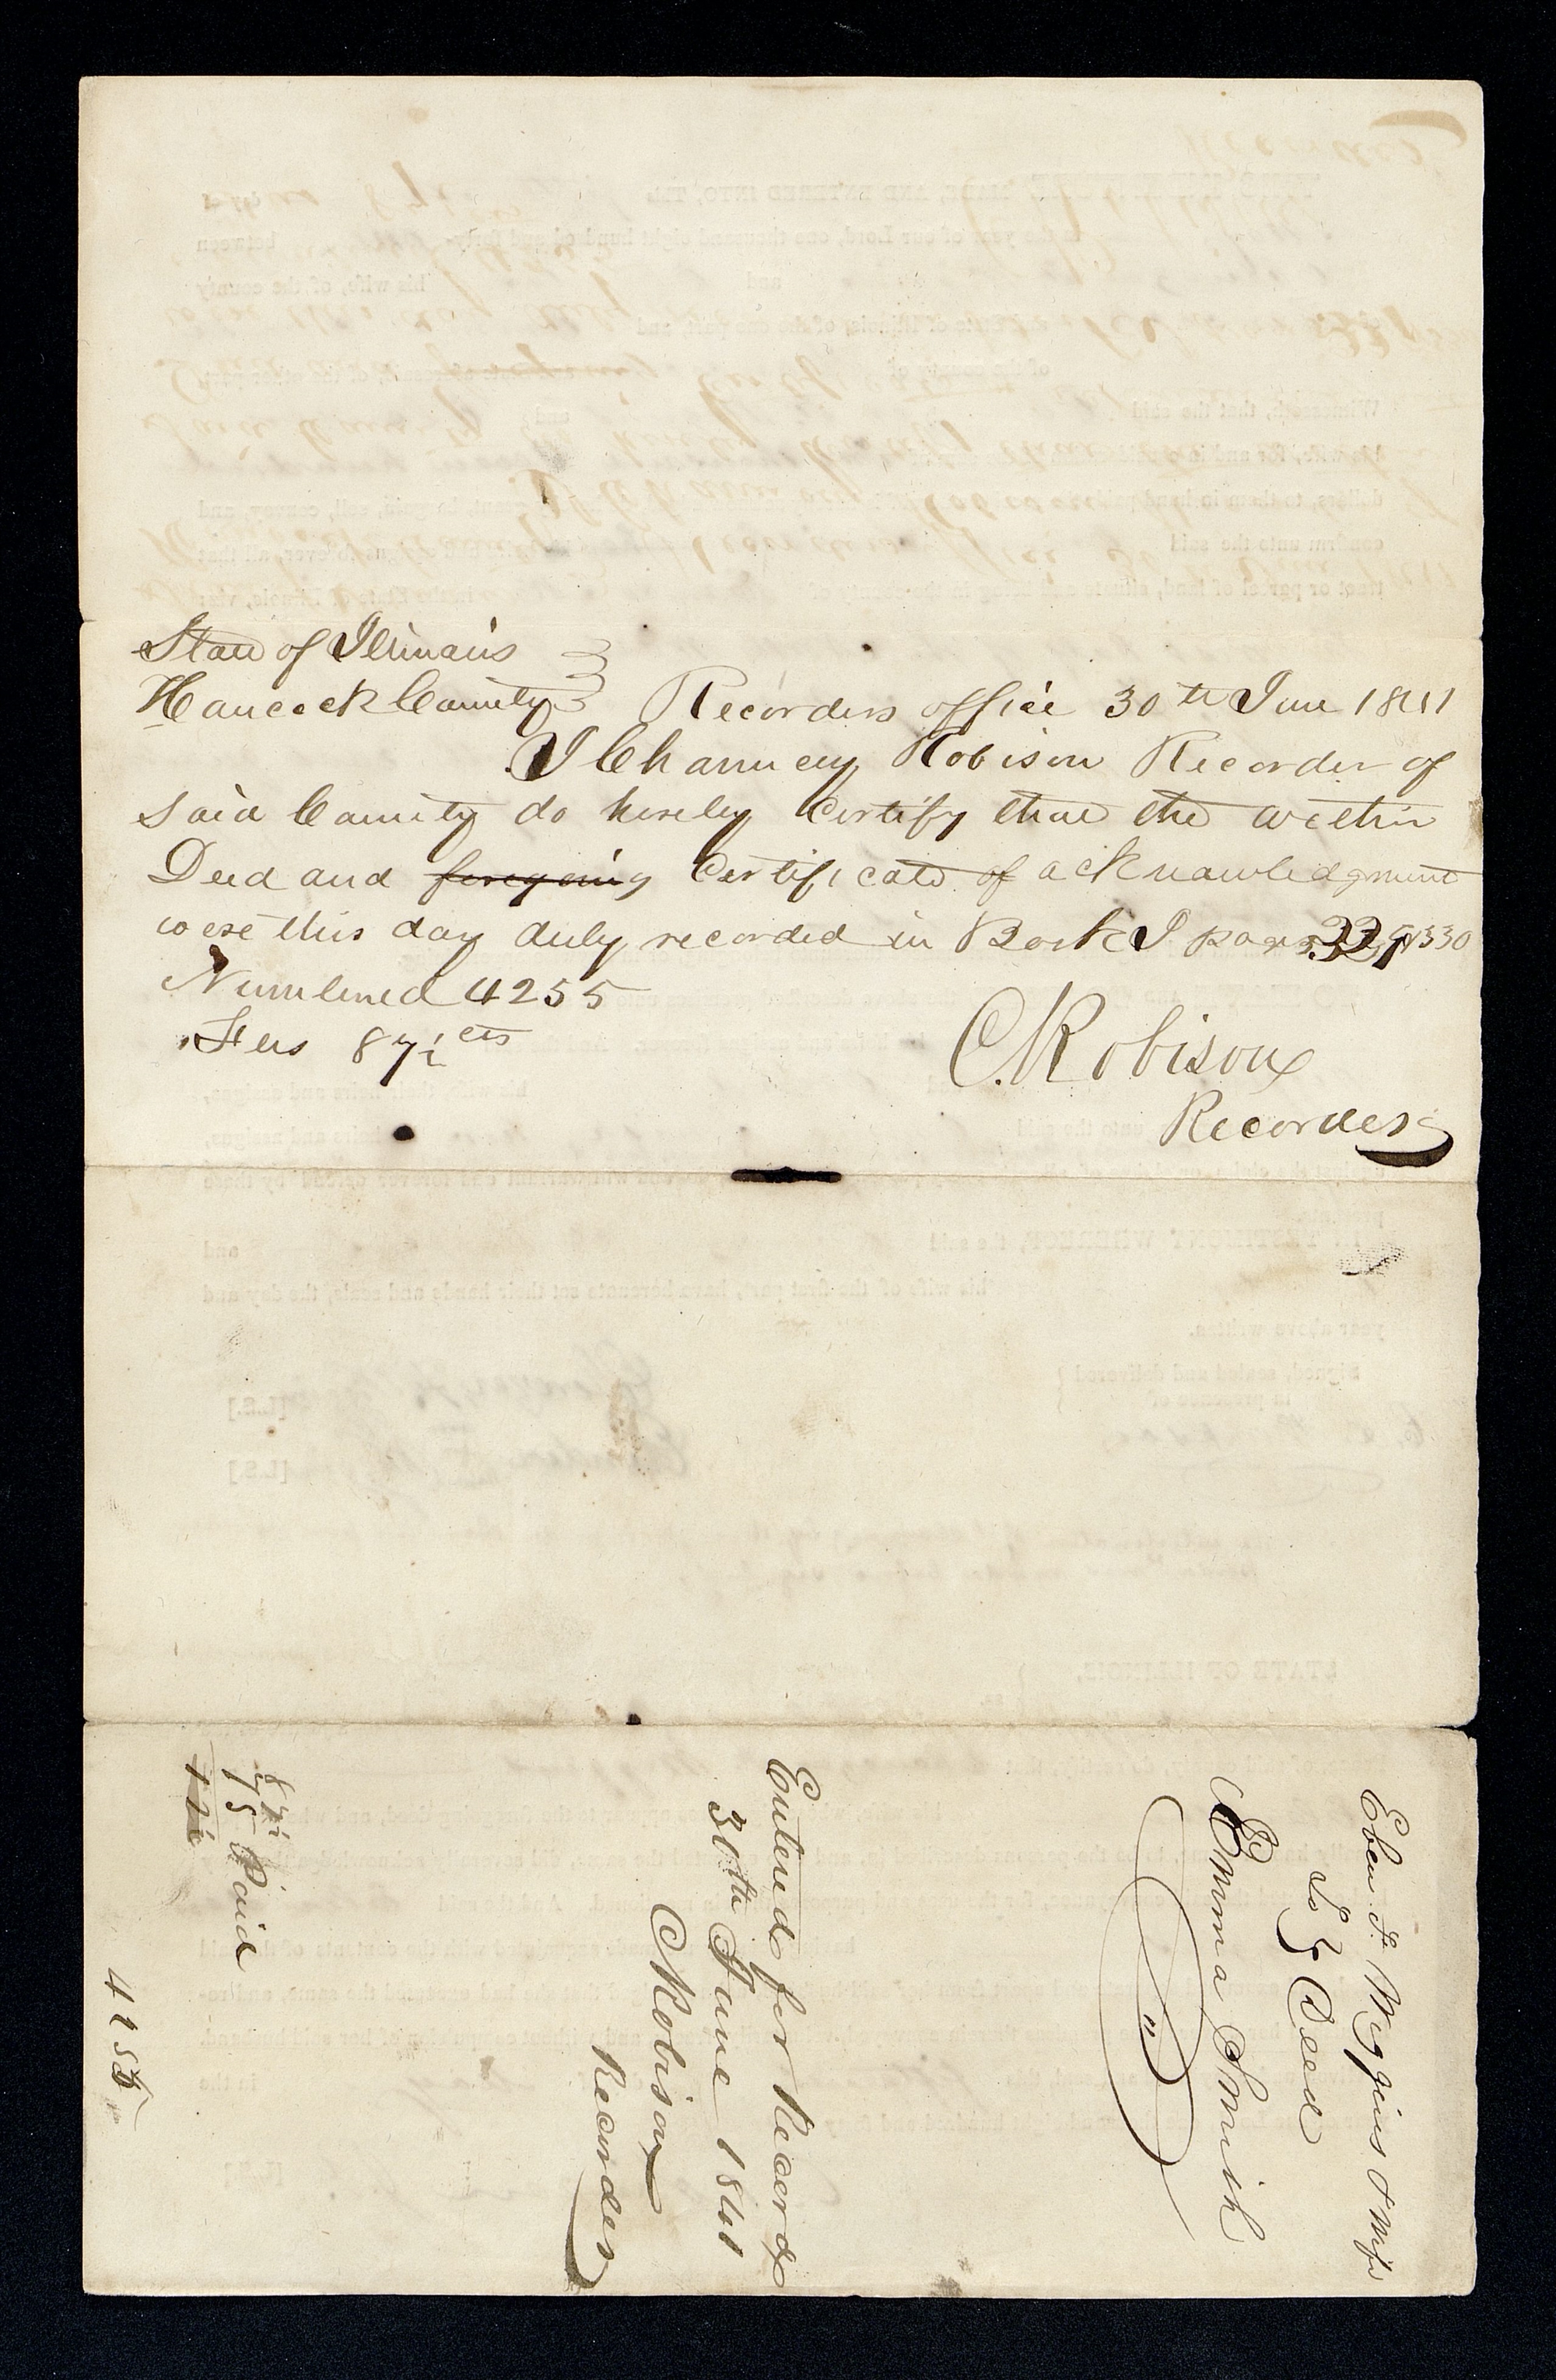 State of Illinois
Hancock County Recorders office 30th June 1841
I Chauncey Robison Recorder of
said County do hereby Certify that the within
Deed and foregoing Certificate of acknowledgment
were this day duly recorded in Book I pages & 330
Numbered 4255
Fees 87½ cts
C. Robison
Recorder
Eben F Wiggins & Wife
To } Deed
Emma Smith
"
Entered for Record
30th June 1841
C Robison
Recorder
87½
75 Paid
12½
4255